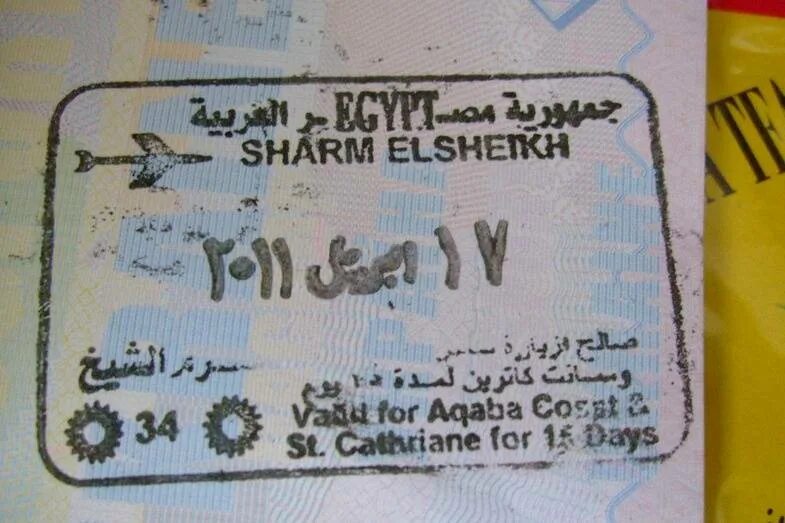 جمهورية مصـ EGYPT ـر العربية
SHARM ELSHEIKH
١٧ ابريل ٢٠١١
صالح لزيارة
شرم الشيخ
وسانت كاترين لمدة ١٥ يوم
Valid for Aqaba Cosat &
34
St. Cathriane for 15 Days
ATE